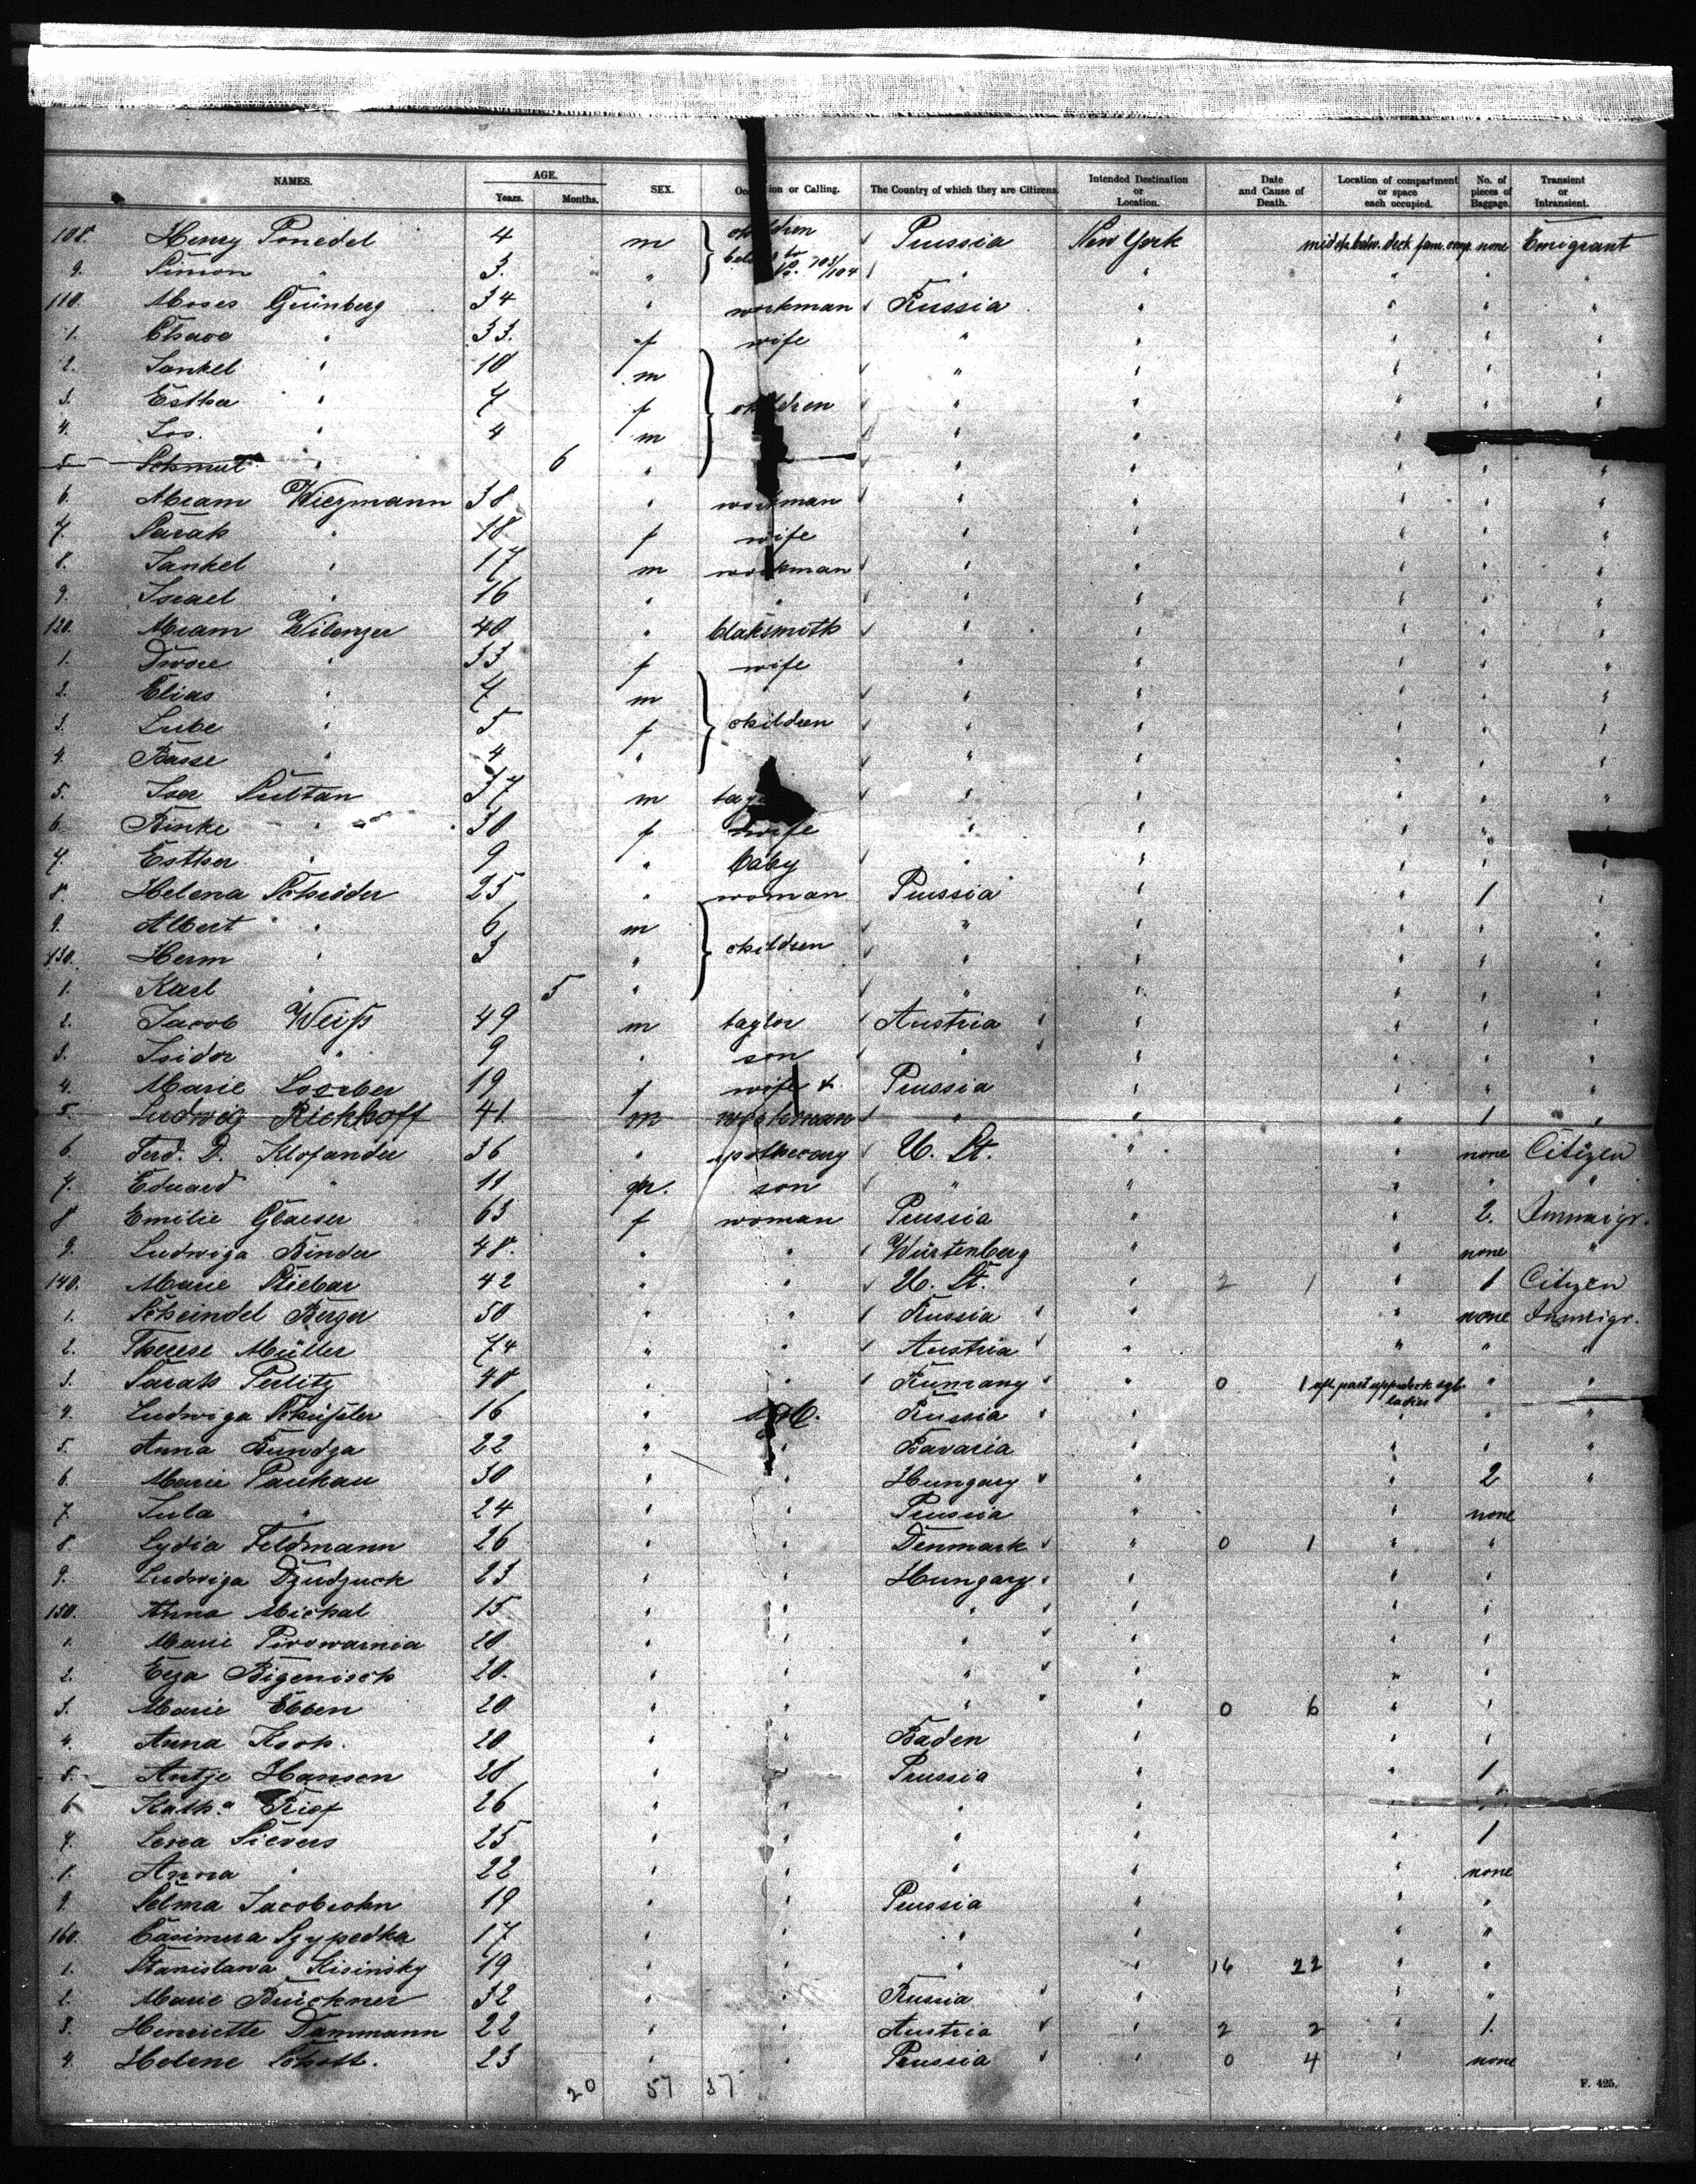 NAMES. AGE. Years. Months. SEX. Occ ion or Calling. The Country of which they are Citizens. Intended Destination or Location. Date and Cause of Death. Location of compartment or space each occupied. No. of pieces of Baggage. Transient or Intransient.
108. Henry Ponedel 4 m children Prussia New York none Emigrant
9. Simon " 3. " " " " " " "
110. Moses Grünberg 34 " workman Russia " " " "
1. Chave " 33. f wife " " " " "
2. Jankel " 10 m " " " " "
3. Esther " 7 f children " " " " "
4. Jos. " 4 m " " " " "
5. Schmul " 6 " " " " " "
6. Abram Wiezmann 38 " workman " " " " "
7. Sarah " 18 f wife " " " " "
8. Jankel " 17 m workman " " " " "
9. Israel " 16 " " " " " " "
120. Abram 40 " blaksmith " " " " "
1. Dwore " 33 f wife " " " " "
2. Elias " 7 m " " " " "
3. Lube " 5 f children " " " " "
4. Basse " 4 " " " " " "
5. Iser Sultan 37 m " " " " "
6. Binke " 30 f wife " " " " "
7. Esther " 9 " baby " " " " "
8. Helena Schröder 25 " woman Prussia " " 1 "
9. Albert " 6 m " " " " "
130. Herm " 3 " children " " " " "
1. Karl " 5 " " " " " "
2. Jacob Weiß 49 m taylor Austria " " " "
3. Isidor " 9 " son " " " " "
4. Marie 19 f wife Prussia " " " "
5. Ludwig Rickhoff 41 m workman " " " 1 "
6. Ferd. D. Klofander 36 " apothecary U. St. " " none Citizen
7. Eduard " 11 m. son " " " " "
8 Emilie Glaeser 63 f woman Prussia " " 2. Immigr.
9. Ludwiga Binder 48. " " Würtenberg " " none "
140. Marie Stiebar 42 " " U. St. " 2 1 " 1 Citizen
1. Scheindel Berger 50 " " Russia " " none Immigr.
2. Therese Müller 74 " " Austria " " " "
3. Sarah Perlitz 48 " " Rumany " 0 1 aft. part uppdeck sgl. ladies " "
4. Ludwiga 16 " Russia " " "
5. Anna Bundza 22 " " Bavaria " " " "
6. Marie Paukau 30 " " Hungary " " 2 "
7. Jula " 24 " " Prussia " " none
8 Lydia Feldmann 26 " " Denmark " 0 1 " "
9. Ludwiga Dzudzuck 23 " " Hungary " " "
150. Anna Michal 15 " " " " " "
1. Marie Pirowarnia 20 " " " " " "
2. Erza Bigenisch 20. " " " " " "
3. Marie Ebben 20 " " " " 0 6 " "
4. Anna Koch. 20 " " Baden " " "
5. Antje Hansen 28 " " Prussia " " 1
6. Kath. Rief 26 " " " " " "
7. Lena Sievers 25 " " " " " 1
8. Anna " 22 " " " " " none
9. Selma Jacobsohn 19 " " Prussia " " "
160. Casimera Szypedka 17 " " " " " "
1. Stanislawa Kisinsky 19 " " " " 16 22 " "
2. Marie Brückner 32 " " Russia " " "
3. Henriette Dammann 22 " " Austria " 2 2 " 1.
4. Helene Schott. 23 " " Prussia " 0 4 " none
20 57 37
F. 425.